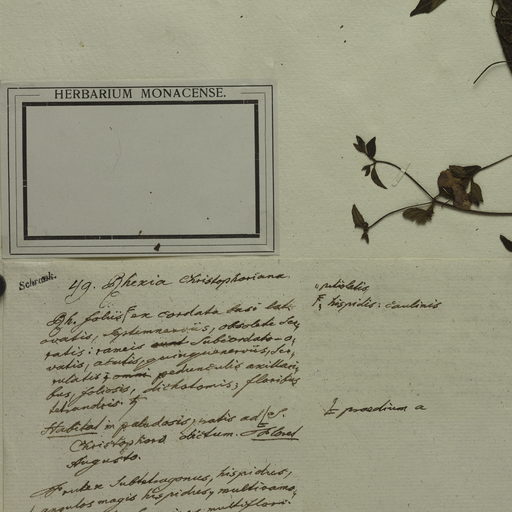 HERBARIUM MONACENSE.
Schrank.
49. Rhexia Christophoriana.
Rh. foliis ex cordata basi lat-
ovatis, septemnerviis, obsolete ser-
ratis: rameis subcordato-o-
vatis, acutis, quinquenerviis, ser-
rulatis; pedunculis axillari-
bus, foliosis, dichotomis; floribus
tetrandris. ♄
Habitat in paludosis, ad S.
Christophoro dictum. Floret
Augusto.
Frutex subtetragonus, hispidus,
angulos magis hispidos, multiramo-
multiflori
petiolatis
hispidis: caulinis
praedium a